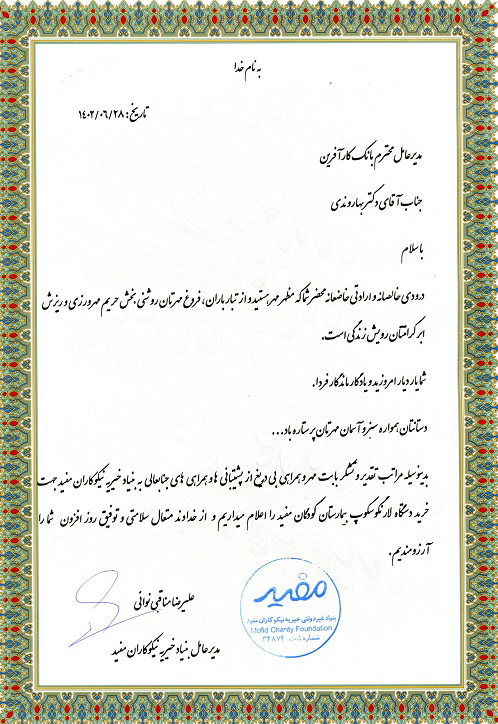 به نام خدا
تاریخ: ۱۴۰۲/۰۶/۲۸
مدیرعامل محترم بانک کارآفرین
جناب آقای دکتر بهاروندی
باسلام
درودی خالصانه و ارادتی خاضعانه محضر شما که مظهر مهر هستید و از تبار باران، فروغ مهرتان روشنی بخش حریم مهرورزی و ریزش
ابر کرامتتان رویش زندگی است.
شما یار دیار امروزید و یادگار ماندگار فردا.
دستانتان همواره سبز و آسمان مهرتان پرستاره باد...
بدینوسیله مراتب تقدیر و تشکر بابت مهر و همراهی بی دریغ از پشتیبانی ها و همراهی های جنابعالی به بنیاد خیریه نیکوکاران مفید جهت
خرید دستگاه لارنگوسکوپ بیمارستان کودکان مفید را اعلام میداریم و از خداوند متعال سلامتی و توفیق روز افزون شما را
آرزومندیم.
علیرضا مناقبی نوائی
مدیرعامل بنیاد خیریه نیکوکاران مفید
مفید
بنیاد غیردولتی خیریه نیکوکاران مفید
Mofid Charity Foundation
شماره ثبت ۳۴۸۷۹